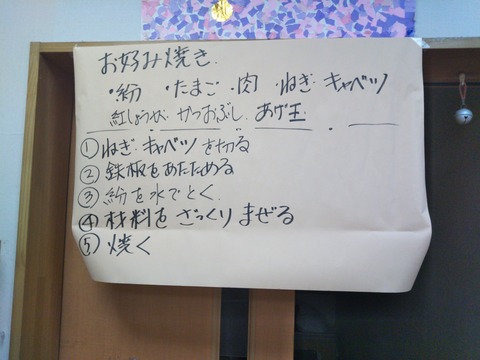 お好み焼き.
・粉 ・たまご ・肉 ・ねぎ ・キャベツ
紅しょうが. かつおぶし. あげ玉
①ねぎ・キャベツを切る
②鉄板をあたためる
③粉を水でとく.
④材料をざっくりまぜる
⑤焼く